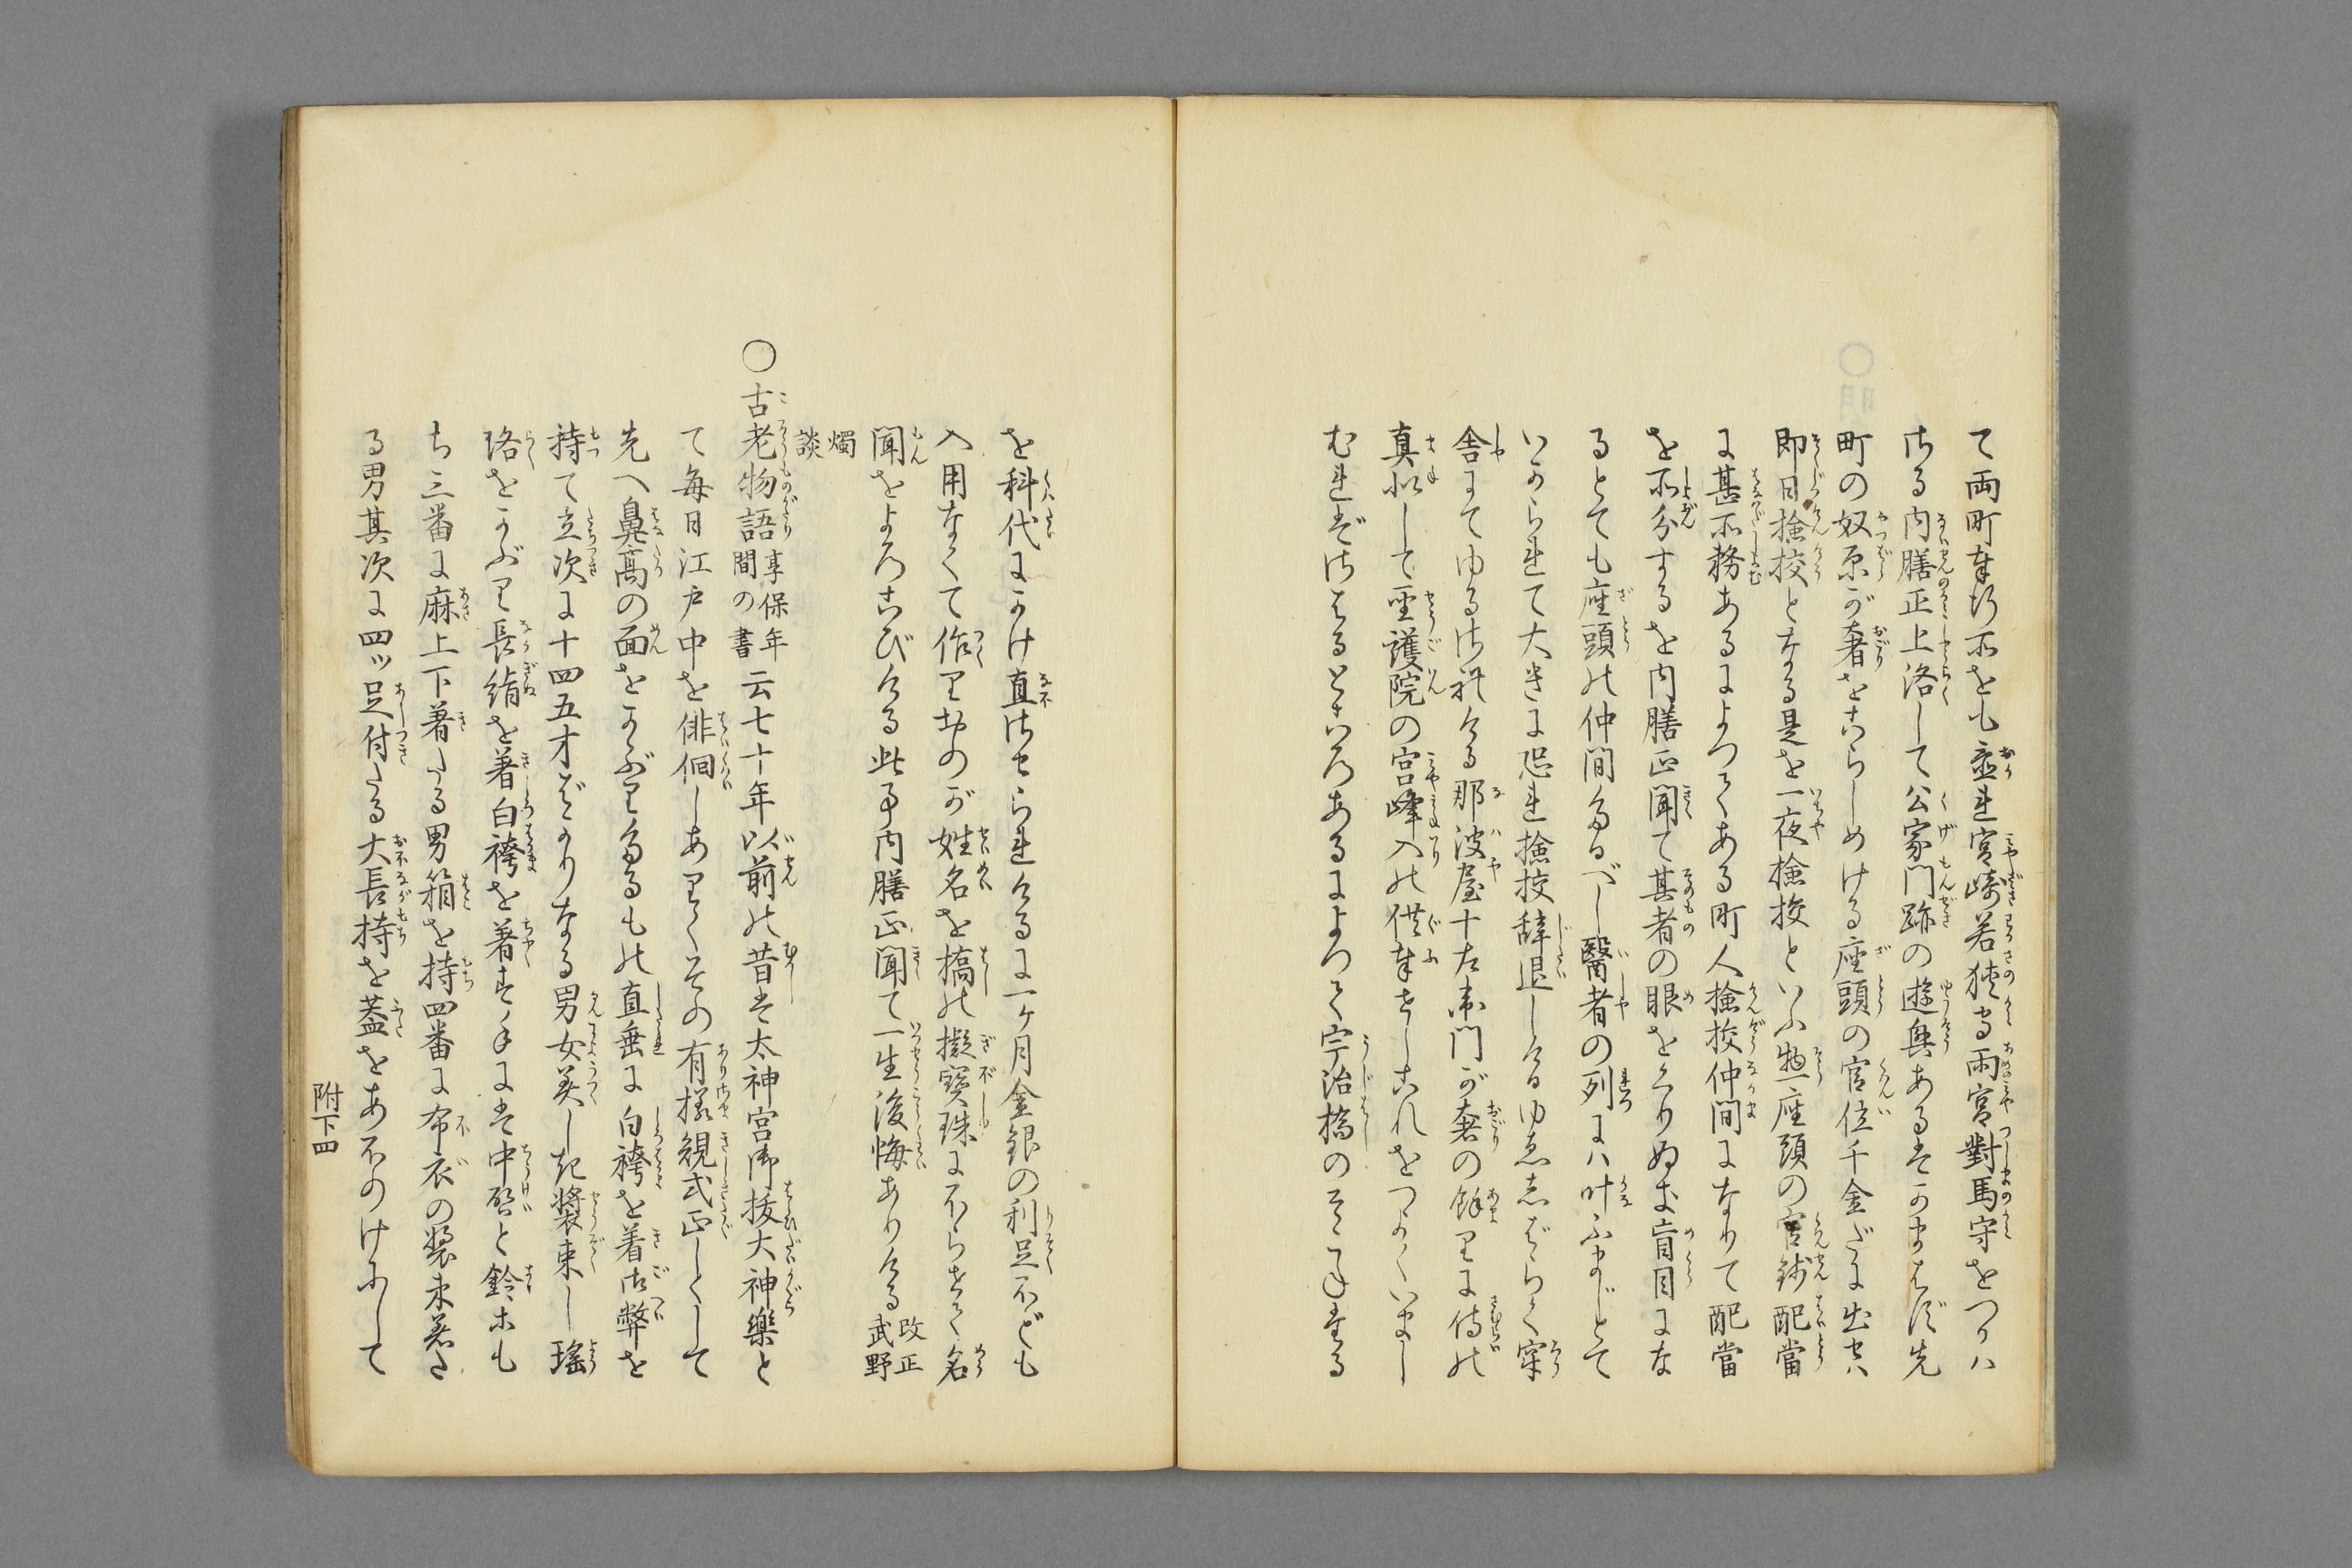 て両町奉行所をも並れ宮崎若狭守雨宮對馬守をつかハ
さる内膳正上洛して公家門跡の遊興あるをかまはず先
町の奴原が奢をこらしめける座頭の官位千金だに出せハ
即日撿挍となる是を一夜撿挍といふ惣座頭の官銭配當
に甚所務あるによつてある町人撿挍仲間になりて配當
を所分するを内膳正聞て其者の眼をくりぬき盲目にな
るとても座頭の仲間たるべし醫者の列にハ叶ふまじとて
いかられて大きに恐れ撿挍辞退しけるゆゑしばらく牢
舎にてゆるされける那波屋十左衛門が奢の餘りに侍の
真似して聖護院の宮峰入の供奉せしこれをつよくいまし
むれどさはるところあるによつて宇治橋のそこねたる
を科代にかけ直させられけるに一ヶ月金銀の利足ほども
入用なくて作りおのが姓名を橋の擬寶珠にほらせて名
聞をよろこびける此事内膳正聞て一生後悔ありける 改正武野
燭談
○古老物語 享保年間の書 云七十年以前の昔は太神宮御祓大神樂と
て毎日江戸中を俳徊しありくその有様規式正しくして
先へ鼻高の面をかぶりたるもの直垂に白袴を着御弊を
持て立次に十四五才ばかりなる男女美しき装束し瑤
珞をかぶり長絹を著白袴を著す手には中啓と鈴とも
ち三番に麻上下著たる男箱を持四番に布衣の装束著た
る男其次に四ッ足付たる大長持を蓋をあふのけにして
附下四